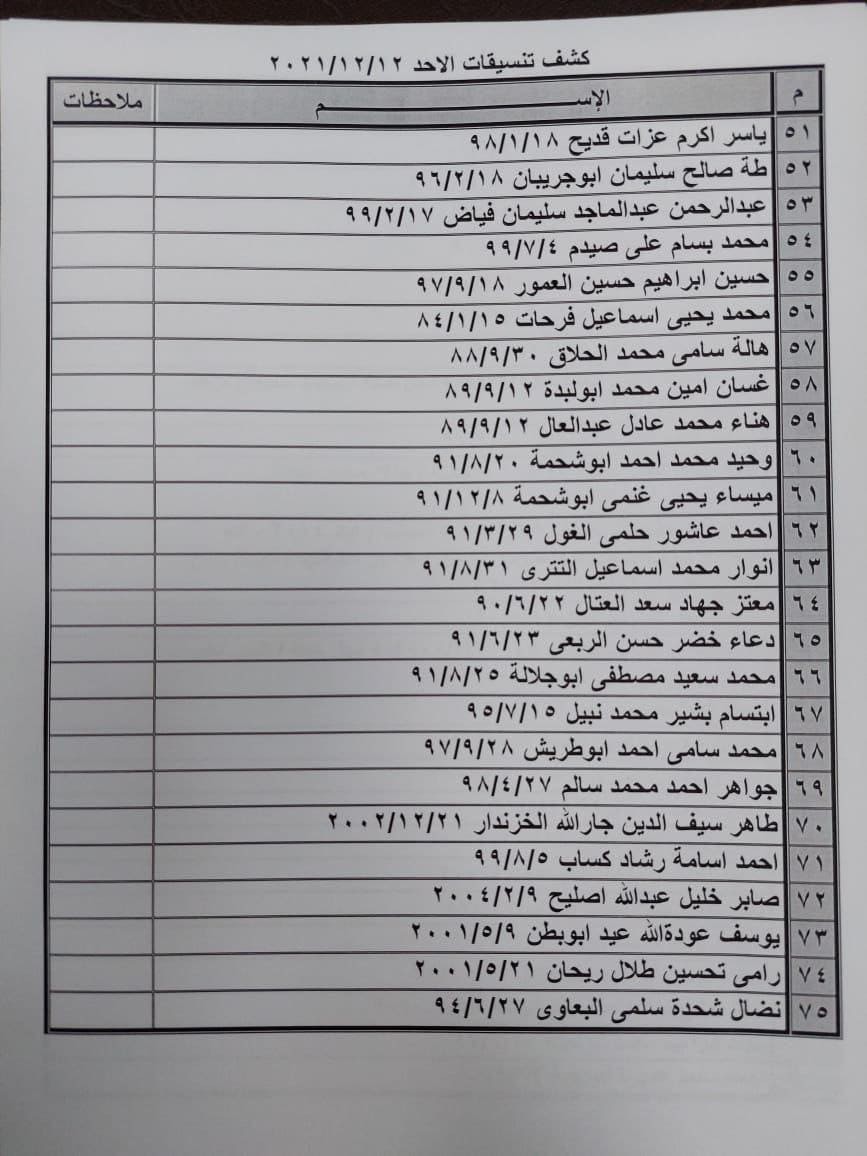 كشف تنسيقات الاحد ٢٠٢١/١٢/١٢
م الإســـــــم ملاحظات
٥١ ياسر اكرم عزات قديح ٩٨/١/١٨
٥٢ طة صالح سليمان ابوجريبان ٩٦/٢/١٨
٥٣ عبدالرحمن عبدالماجد سليمان فياض ٩٩/٢/١٧
٥٤ محمد بسام على صيدم ٩٩/٧/٤
٥٥ حسين ابراهيم حسين العمور ٩٧/٩/١٨
٥٦ محمد يحيى اسماعيل فرحات ٨٤/١/١٥
٥٧ هالة سامى محمد الحلاق ٨٨/٩/٣٠
٥٨ غسان امين محمد ابولبدة ٨٩/٩/١٢
٥٩ هناء محمد عادل عبدالعال ٨٩/٩/١٢
٦٠ وحيد محمد احمد ابوشحمة ٩١/٨/٢٠
٦١ ميساء يحيى غنمى ابوشحمة ٩١/١٢/٨
٦٢ احمد عاشور حلمى الغول ٩١/٣/٢٩
٦٣ انوار محمد اسماعيل التترى ٩١/٨/٣١
٦٤ معتز جهاد سعد العتال ٩٠/٦/٢٢
٦٥ دعاء خضر حسن الربعى ٩١/٦/٢٣
٦٦ محمد سعيد مصطفى ابوجلالة ٩١/٨/٢٥
٦٧ ابتسام بشير محمد نبيل ٩٥/٧/١٥
٦٨ محمد سامى احمد ابوطريش ٩٧/٩/٢٨
٦٩ جواهر احمد محمد سالم ٩٨/٤/٢٧
٧٠ طاهر سيف الدين جارالله الخزندار ٢٠٠٢/١٢/٢١
٧١ احمد اسامة رشاد كساب ٩٩/٨/٥
٧٢ صابر خليل عبدالله اصليح ٢٠٠٤/٢/٩
٧٣ يوسف عودةالله عيد ابوبطن ٢٠٠١/�/٩
٧٤ رامى تحسين طلال ريحان ٢٠٠١/٥/٢١
٧٥ نضال شحدة سلمى البعاوى ٩٤/٦/٢٧